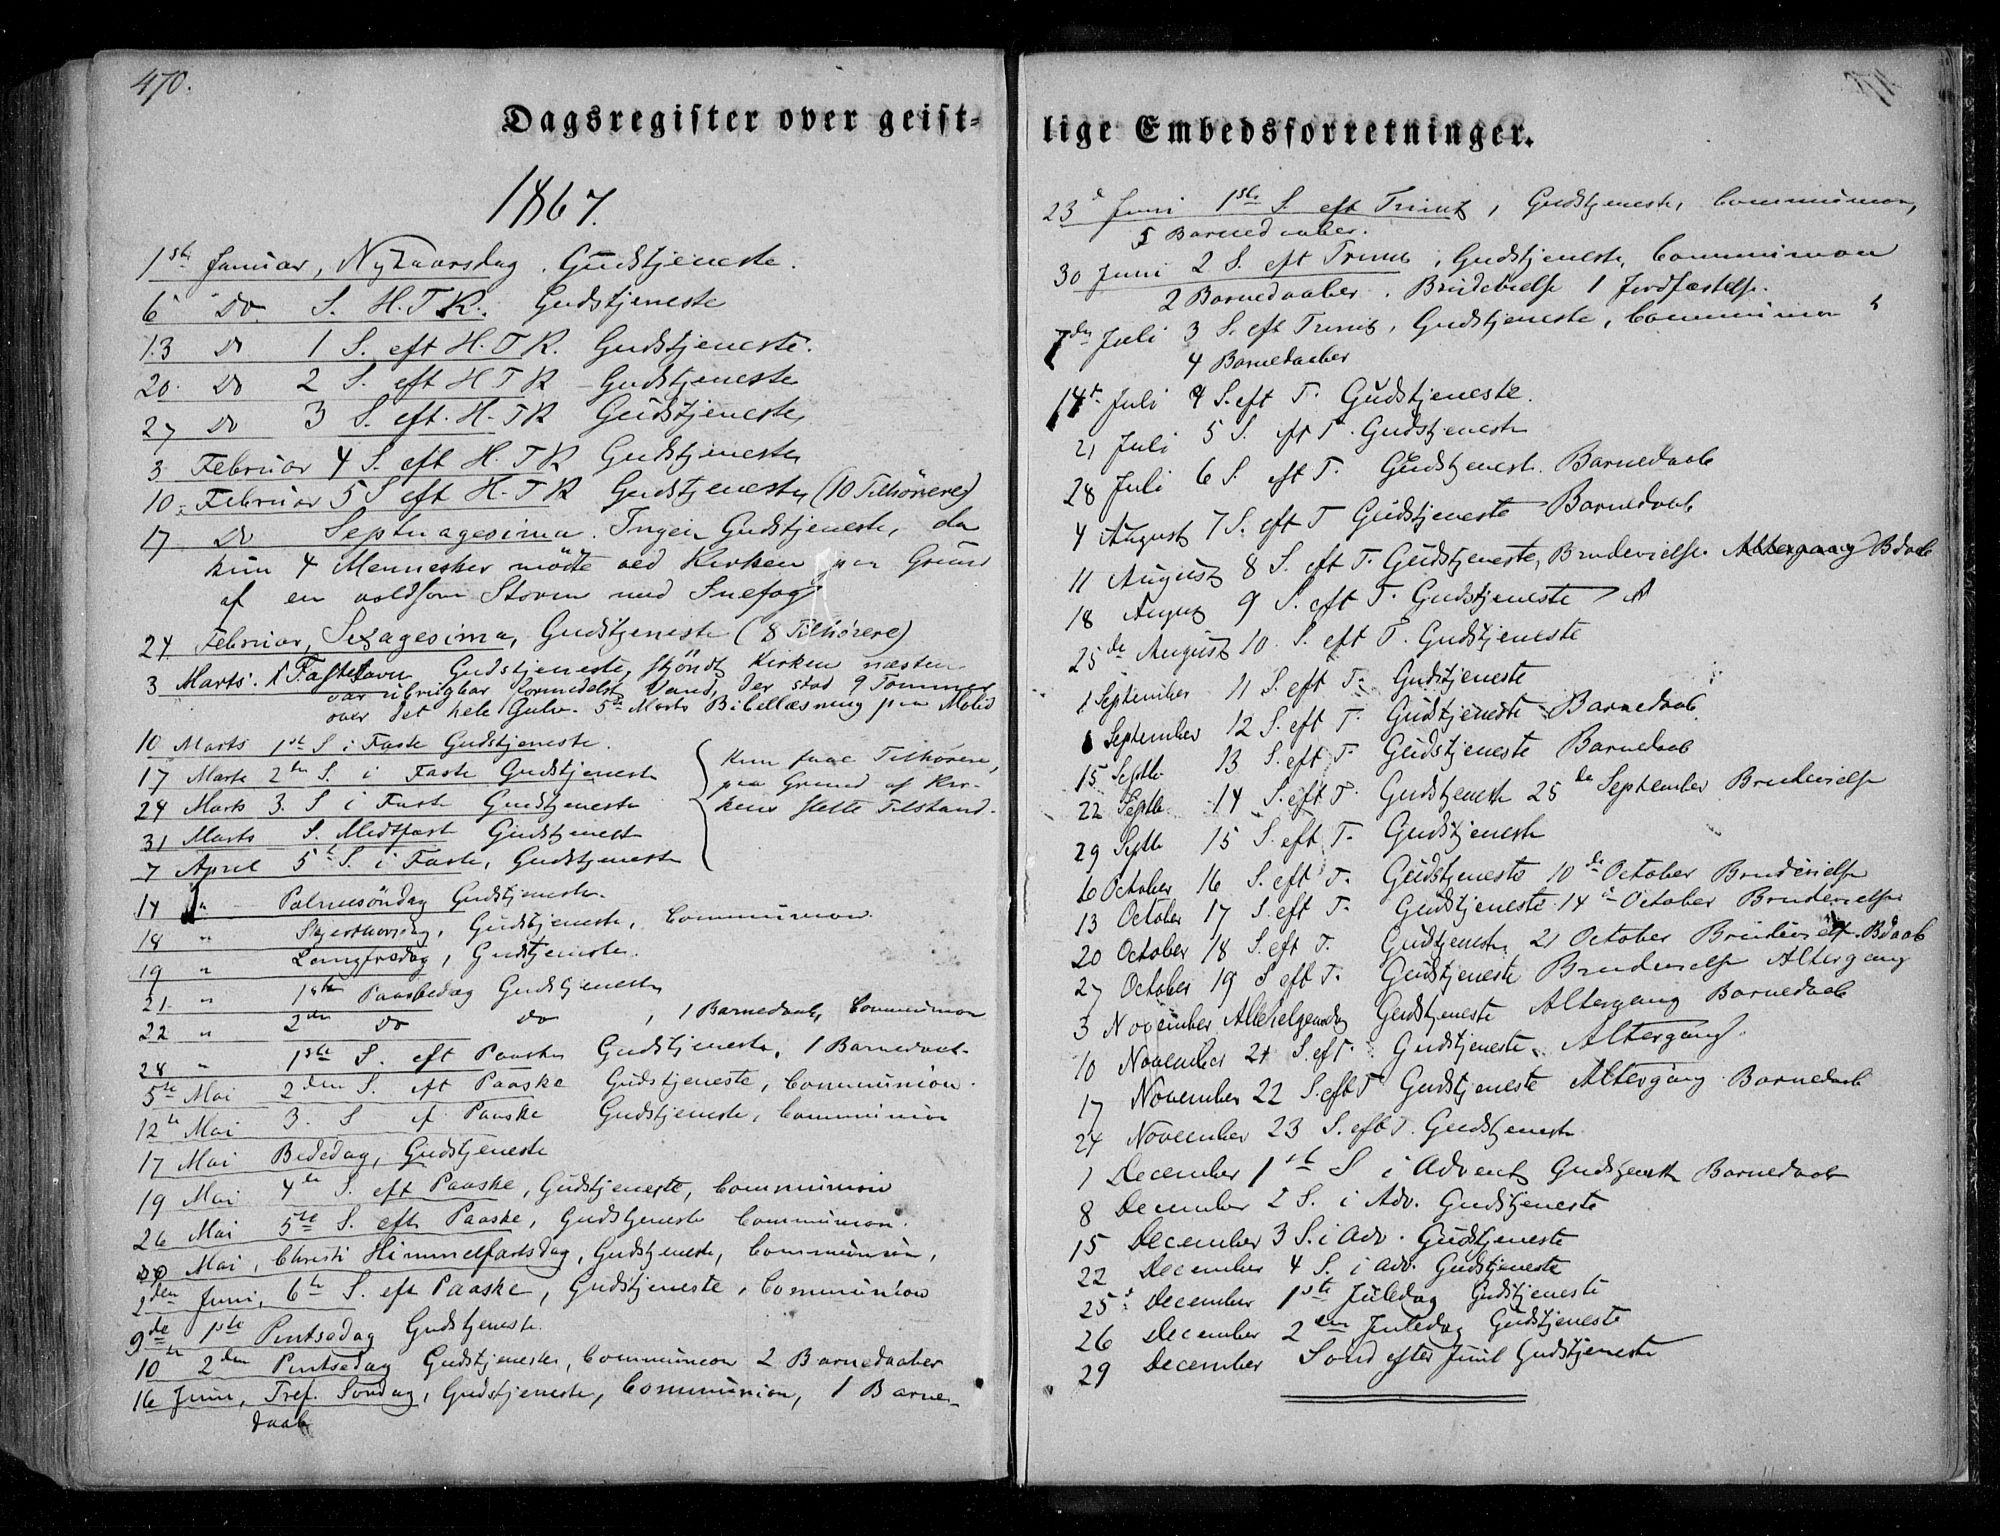 470.
Dagsregister over geist-
1867.
1ste Januar, Nytaarsdag. Gudstjeneste.
6 Do. S. H.T.K. Gudstjeneste
13 Do 1 S. eft H.T.K. Gudstjeneste.
20. Do 2 S. eft H T K Gudstjeneste
27 Do 3 S. eft. H. T K Gudstjeneste
3 Februar 4 S. eft H. T K Gudstjeneste
10. Februar 5 S eft H. T K Gudstjeneste (10 Tilhörere)
17 Do Septuagesima. Ingen Gudstjeneste, da
kun 4 Mennesker mödte ved Kirken paa Grund
af en voldsom Storm med Snefog
24. Februar, Sexagesima, Gudstjeneste (8 Tilhörere)
3 Marts. Fastelavn Gudstjeneste, skjöndt Kirken næsten
var ubrugbar formedelst Vand, der stod 9 Tommer
over det hele Gulv. 5te Marts Bibellæsning paa
10 Marts 1ste S i Faste Gudstjeneste.
17 Marts 2den S. i Faste Gudstjeneste
24 Marts 3. S i Faste Gudstjeneste
31 Marts S. Midtfast Gudstjeneste
7 April 5te S. i Faste, Gudstjeneste
Kun faae Tilhörere,
paa Grund af Kir-
kens slette Tilstand.
14 " Palmesöndag Gudstjeneste.
18 " Skjærthorsdag, Gudstjeneste, Communion.
19 " Langfrdag, Gudstjeneste.
21. " 1ste Paaskedag Gudstjeneste
22 " 2den Do Do, 1 Barnedaab, Communion
28 " 1ste S. eft Paaske Gudstjeneste, 1 Barnedaab.
5te Mai 2den S. eft Paaske Gudstjeneste, Communion.
12te Mai 3. S ef Paaske Gudstjeneste, Communion
17 Mai Bededag, Gudstjeneste
19 Mai 4de S. eft Paaske, Gudstjeneste, Communion
26 Mai 5te S. eft Paaske, Gudstjeneste Communion.
30 Mai, Christi Himmelfartsdag, Gudstjeneste, Communion,
2den Juni, 6te S. eft Paaske, Gudstjeneste, Communion
9de 1ste Pintsedag Gudstjeneste.
10 2den Pintsedag Gudstjeneste, Communion 2 Barnedaaber
16 Juni, Tref. Söndag, Gudstjeneste, Communion, 1 Barne-
daab
lige Embedsforretninger.
23d Juni 1ste S. eft Trinit, Gudstjeneste, Communion,
5 Barnedaaber.
30 Juni 2 S. eft Trinit, Gudstjeneste, Communion
2 Barnedaaber. Brudevielse 1 Jordfæstelse.
7den Juli 3 S. eft Trinit, Gudstjeneste, Communion
4 Barnedaaber
14de Juli 4 S. eft T. Gudstjeneste.
21 Juli 5 S. eft T. Gudstjeneste
28 Juli 6 S. eft T. Gudstjeneste. Barnedaab
4 August 7 S. eft T Gudstjeneste Barnedaab
11 August 8 S. eft T. Gudstjeneste, Brudevielse. Altergang Bdaab
18 August 9 S. eft T. Gudstjeneste
25de August 10. S. eft T. Gudstjeneste
1 September 11 S. eft T. Gudstjeneste
September 12 S. eft T. Gudstjeneste Barnedaab
15 Septbr 13 S. eft T. Gudstjeneste Barnedaab
22 Septbr. 14 S. eft T. Gudstjeneste 25de September Brudevielse
29 Septbr 15 S. eft T. Gudstjeneste
6 October 16 S. eft T. Gudstjeneste 10de October Brudevielse
13 October 17 S. eft T. Gudstjeneste. 14de October Brudevielse
20 October 18 S. eft T. Gudstjeneste 21 October Brudevielse. Bdaab
27 October 19 S eft T. Gudstjeneste Brudevielse Altergang
3 November Allehelgensdag Gudstjeneste Altergang Barnedaab
10 November 21 S. eft. Gudstjeneste. Altergang.
17 November 22 S. eft T Gudstjeneste Altergang Barnedaab
24 November 23 S. eft T. Gudstjeneste
1 December 1ste S i Advent Gudstjeneste Barnedaab
8 December 2 S. i Adv. Gudstjeneste
15 December 3 S. i Adv. Gudstjeneste
22 December 4 S. i Adv. Gudstjeneste
25d December 1ste Juledag Gudstjeneste
26 December 2en Juledag Gudstjeneste
29 December Sönd efter Juul Gudstjeneste